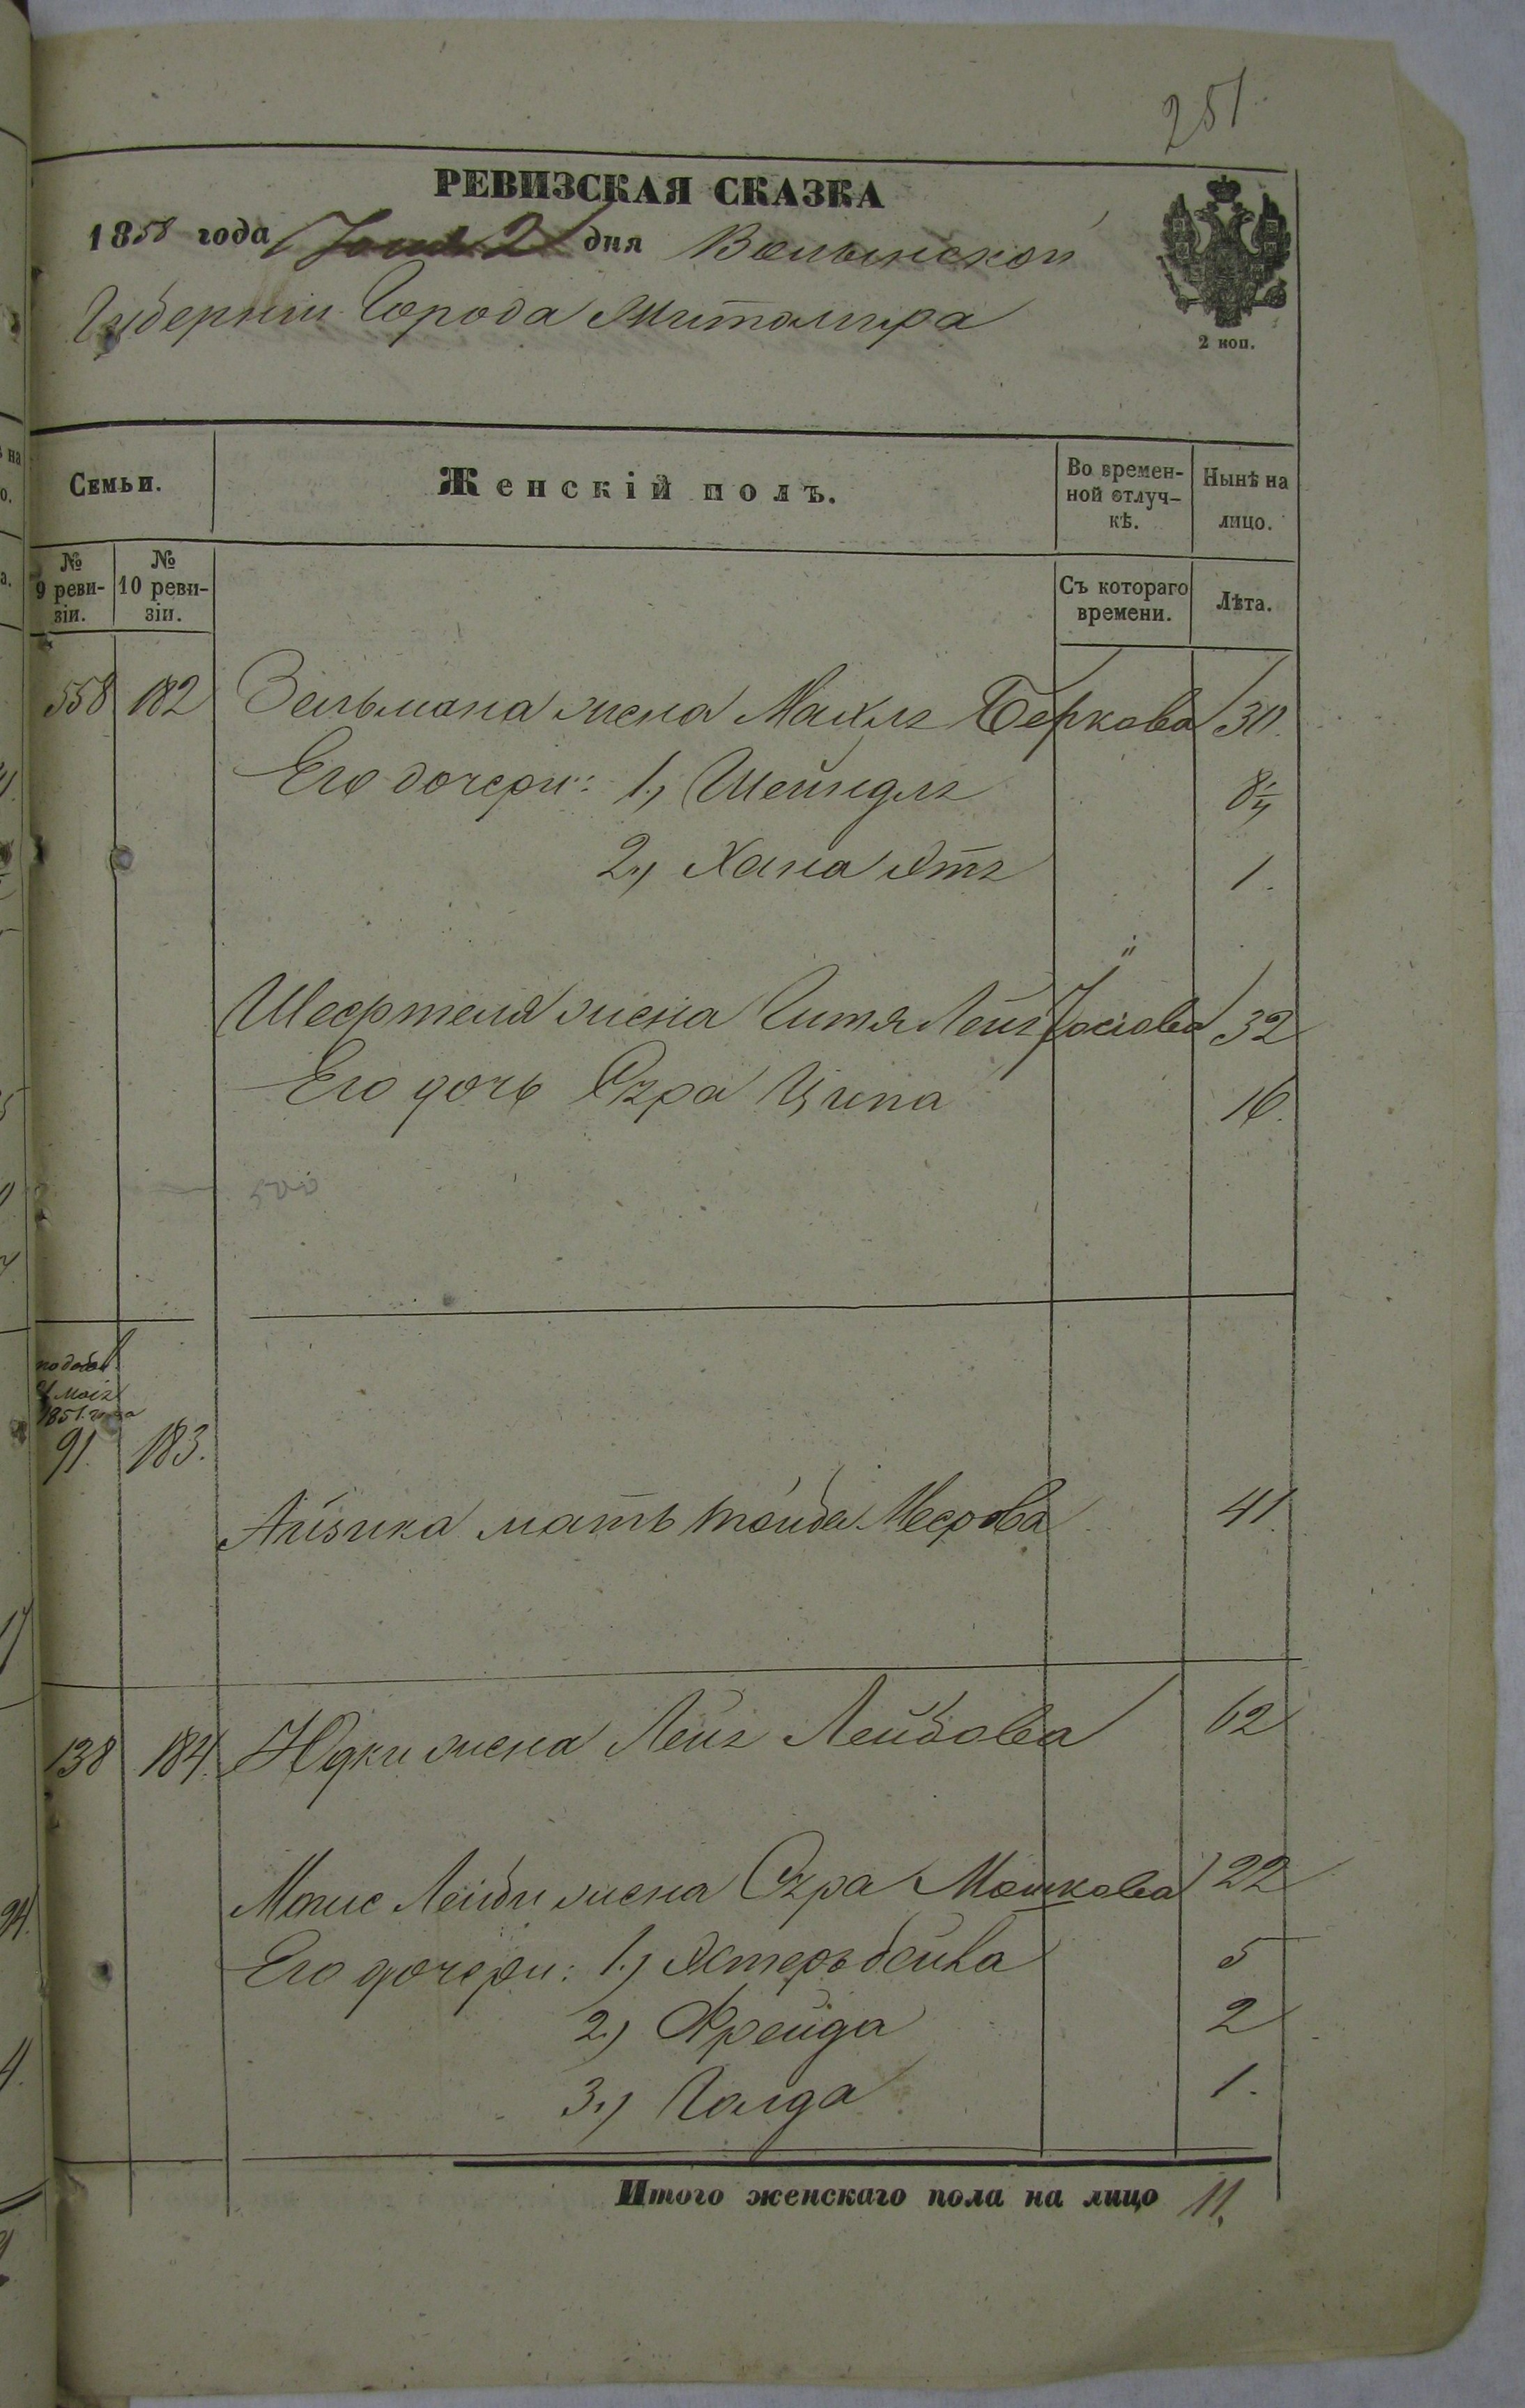 251.
РЕВИЗСКАЯ СКАЗКА
1858 года дня Волынской
Губерніи Города Житомира
2 коп.
Семьи.
Женскій полъ.
Во времен-
ной отлуч-
кѣ.
Нынѣ на
лицо.
№
9 реви-
зіи.
№
10 реви-
зіи.
Съ котораго
времени.
Лѣта.
558 182 Зельмана жена Махлѣ Беркова 30.
Его дочери: 1., Шейндлѣ 8¼
2., Хана Ятѣ 1.
жена Гитя Леиѣ Іосіова 32
Его дочь Сура Ципа 16.
500
1851. года
91. 183.
Айзика мать Тойба Меерова 41.
138 184. Юдки жена Леиѣ Лейбова 62
Мошс Лейби жена Сура Мошкова 22
Его дочери: 1.) Эстеръ Бейла 5
2.) Фрейда 2
3.) Голда 1.
Итого женскаго пола на лицо 11.